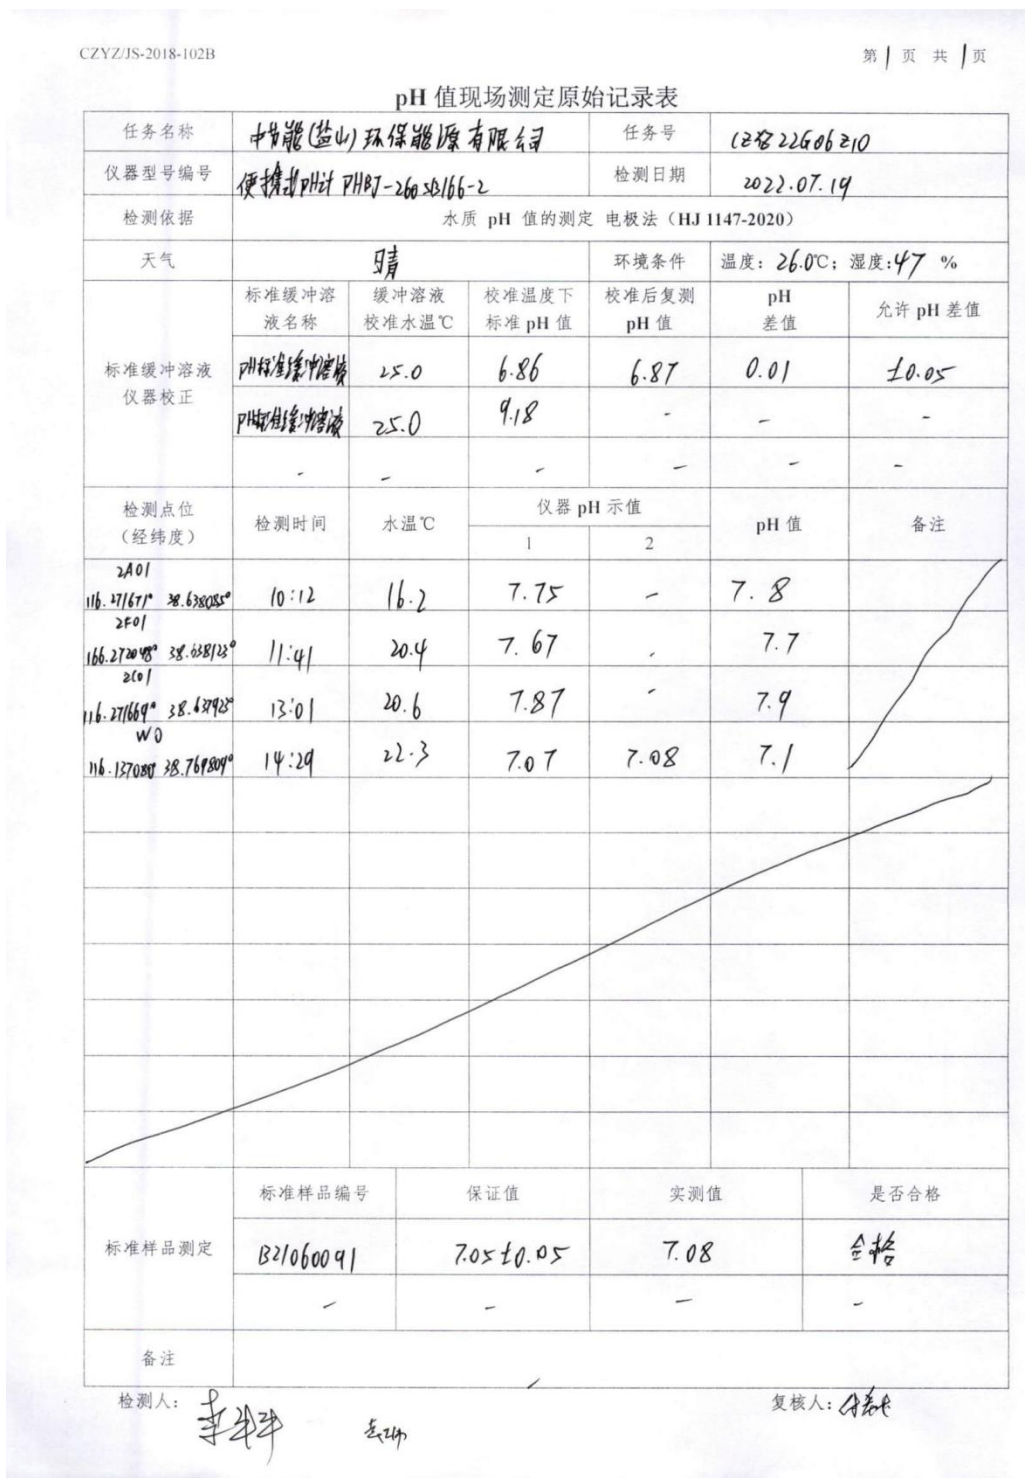 CZYZ/JS-2018-102B
第1页 共1页
pH 值现场测定原始记录表
任务名称 中节能(盐山)环保能源有限公司 任务号 CZYZ22G06Z10
仪器型号编号 便携式pH计 PHBJ-260 检测日期 2022.07.19
检测依据 水质 pH 值的测定 电极法(HJ 1147-2020)
天气 晴 环境条件 温度:26.0℃;湿度:47 %
标准缓冲溶液仪器校正
标准缓冲溶液名称 缓冲溶液校准水温℃ 校准温度下标准 pH 值 校准后复测 pH 值 pH 差值 允许 pH 差值
pH标准缓冲溶液 25.0 6.86 6.87 0.01 ±0.05
pH标准缓冲溶液 25.0 9.18 - - -
- - - - - -
检测点位(经纬度) 检测时间 水温℃ 仪器 pH 示值 pH 值 备注
1 2
2A01
116.271671° 38.638085° 10:12 16.2 7.75 - 7.8
2F01
166.272048° 38.638123° 11:41 20.4 7.67 - 7.7
2C01
116.271669° 38.637923° 13:01 20.6 7.87 - 7.9
W0
116.137080° 38.769809° 14:29 22.3 7.07 7.08 7.1
标准样品测定
标准样品编号 保证值 实测值 是否合格
B21060091 7.05±0.05 7.08 合格
- - - -
备注
检测人:
复核人: